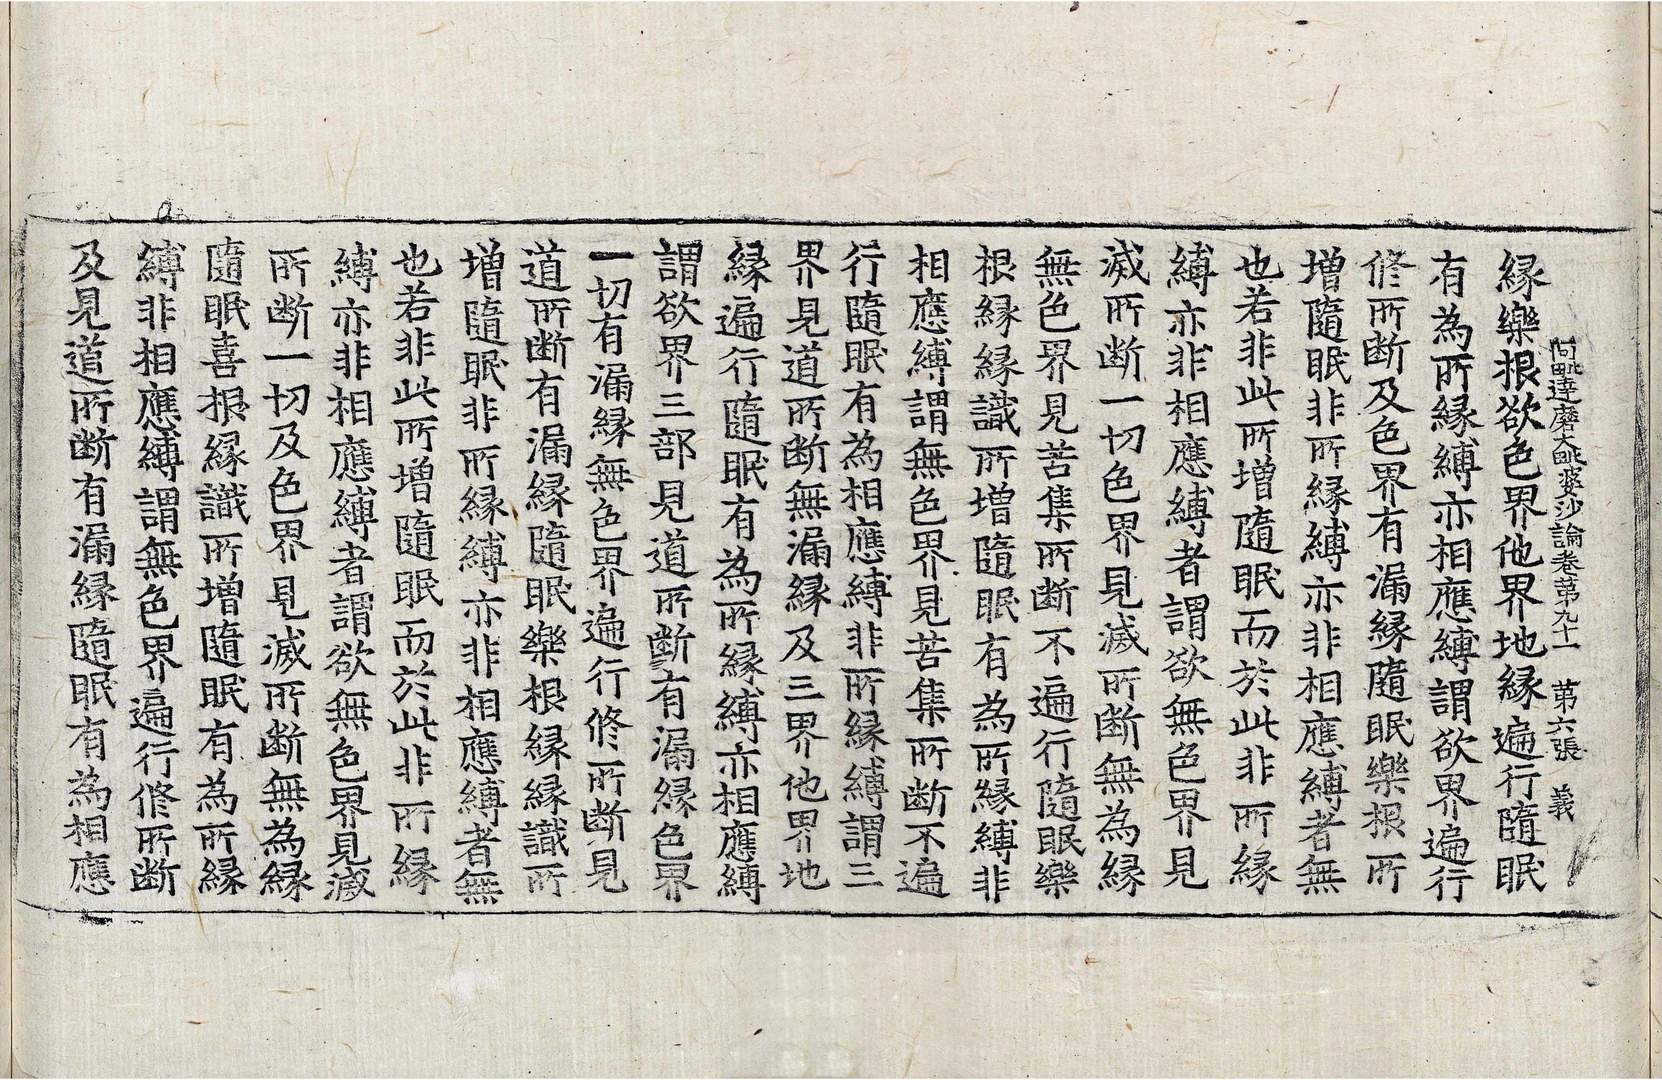 阿毗達磨大毗婆沙論卷第九十一 第六張 義
縁樂根欲色界他界地縁遍行隨眠
有為所縁縛亦相應縛謂欲界遍行
修所断及色界有漏縁隨眠樂根所
増隨眠非所縁縛亦非相應縛者無
也若非此所増隨眠而於此非所縁
縛亦非相應縛者謂欲無色界見
滅所断一切色界見滅所断無為縁
無色界見苦集所断不遍行隨眠樂
根縁縁識所増隨眠有為所縁縛非
相應縛謂無色界見苦集所断不遍
行隨眠有為相應縛非所縁縛謂三
界見道所断無漏縁及三界他界地
縁遍行隨眠有為所縁縛亦相應縛
謂欲界三部見道所断有漏縁色界
一切有漏縁無色界遍行修所断見
道所断有漏縁隨眠樂根縁縁識所
増隨眠非所縁縛亦非相應縛者無
也若非此所増隨眠而於此非所縁
縛亦非相應縛者謂欲無色界見滅
所断一切及色界見滅所断無為縁
隨眠喜根縁識所増隨眠有為所縁
縛非相應縛謂無色界遍行修所断
及見道所断有漏縁隨眠有為相應